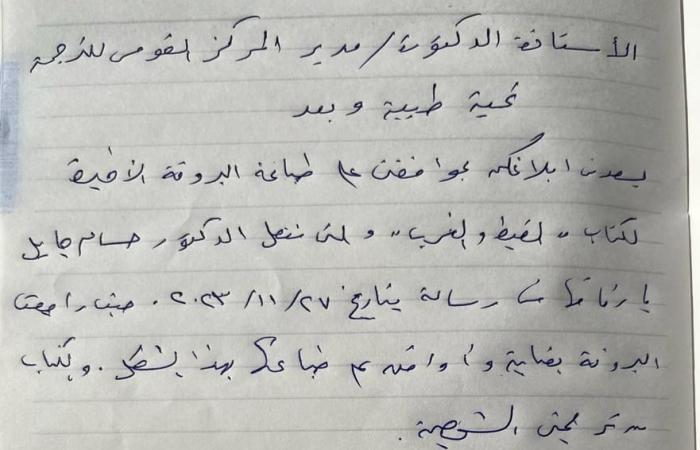 الأستاذة الدكتورة / مدير المركز القومى للترجمة
تحية طيبة وبعد
يسعدنى ابلاغكم بموافقتى على طباعة البروفة الأخيرة
لكتاب " القبط والغرب " والتى تفضل الدكتور حسام جايل
بإرفاقها فى رسالة بتاريخ ٢٠٢٣/١١/٢٧ . حيث راجعت
البروفة بعناية وأوافق على طباعتها بهذا الشكل . والكتاب
من ترجمتى الشخصية .